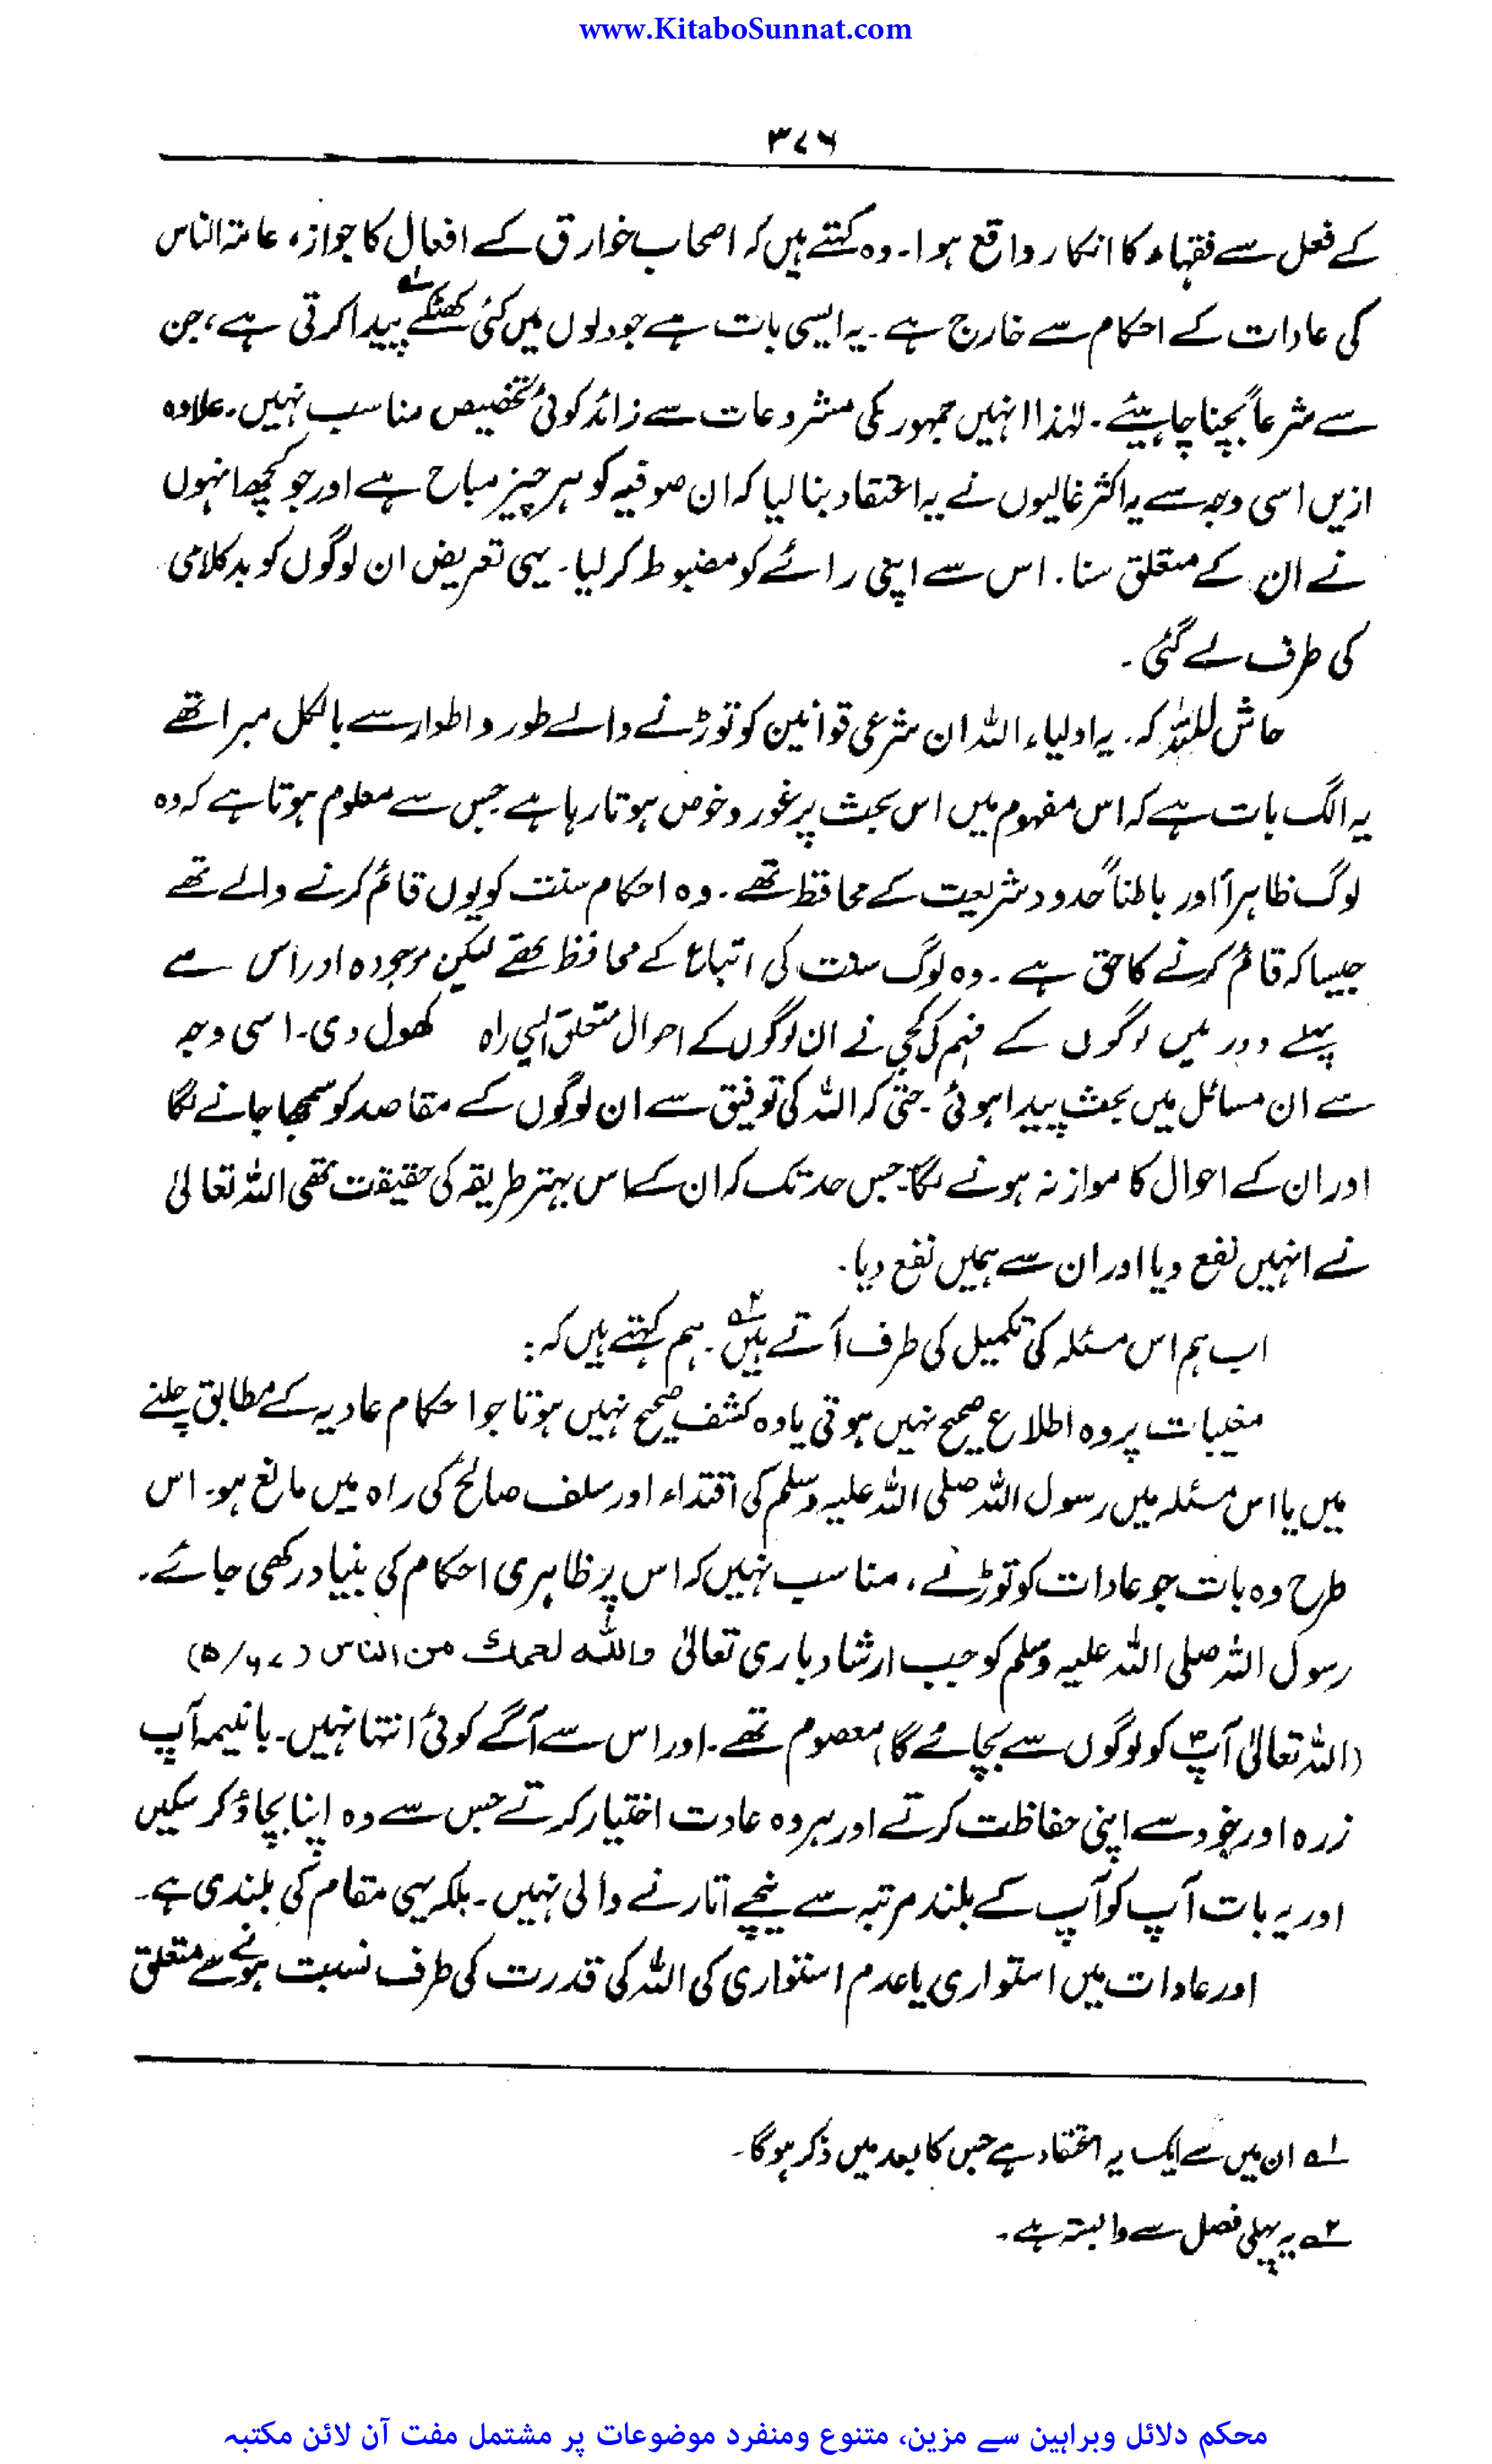 www.KitaboSunnat.com
۳۷۶
کے فعل سے فقہاء کا انکار واقع ہوا۔ وہ کہتے ہیں کہ اصحاب خوارق کے افعال کا جواز، عامۃ الناس
کی عادات کے احکام سے خارج ہے۔ یہ ایسی بات ہے جو دلوں میں کئی کھٹکے ۱ پیدا کرتی ہے، جن
سے شرعاً بچنا چاہیئے۔ لہٰذا انہیں جمہور کی مشروعات سے زائد کوئی تخصیص مناسب نہیں۔ علاوہ
ازیں اسی وجہ سے یہ اکثر غالیوں نے یہ اعتقاد بنا لیا کہ ان صوفیہ کو ہر چیز مباح ہے اور جو کچھ انہوں
نے ان کے متعلق سنا۔ اس سے اپنی رائے کو مضبوط کر لیا۔ یہی تعریض ان لوگوں کو بد کلامی
کی طرف لے گئی۔
حاش للہ کہ۔ یہ اولیاء اللہ ان شرعی قوانین کو توڑنے والے طور و اطوار سے بالکل مبرا تھے
یہ الگ بات ہے کہ اس مفہوم میں اس بحث پر غور و خوض ہوتا رہا ہے جس سے معلوم ہوتا ہے کہ وہ
لوگ ظاہراً اور باطناً حدود شریعت کے محافظ تھے۔ وہ احکام سنت کو یوں قائم کرنے والے تھے
جیسا کہ قائم کرنے کا حق ہے۔ وہ لوگ سنت کی اتباع کے محافظ تھے لیکن موجودہ اور اس سے
پہلے دور میں لوگوں کے فہم کی کجی نے ان لوگوں کے احوال متعلق ایسی راہ کھول دی۔ اسی وجہ
سے ان مسائل میں بحث پیدا ہوئی۔ حتیٰ کہ اللہ کی توفیق سے ان لوگوں کے مقاصد کو سمجھا جانے لگا
اور ان کے احوال کا موازنہ ہونے لگا۔ جس حد تک کہ ان کے اس بہتر طریقہ کی حقیقت تھی اللہ تعالیٰ
نے انہیں نفع دیا اور ان سے ہمیں نفع دیا۔
اب ہم اس مسئلہ کی تکمیل کی طرف آتے ہیں ۲۔ ہم کہتے ہیں کہ:
مغیبات پر وہ اطلاع صحیح نہیں ہوتی یا وہ کشف صحیح نہیں ہوتا جو احکام عادیہ کے مطابق چلنے
میں یا اس مسئلہ میں رسول اللہ صلی اللہ علیہ وسلم کی اقتداء اور سلف صالح کی راہ میں مانع ہو۔ اس
طرح وہ بات جو عادات کو توڑنے، مناسب نہیں کہ اس پر ظاہری احکام کی بنیاد رکھی جائے۔
رسول اللہ صلی اللہ علیہ وسلم کو جب ارشاد باری تعالیٰ واللہ یعصمک من الناس (۵/۶۷)
(اللہ تعالیٰ آپؐ کو لوگوں سے بچائے گا) معصوم تھے۔ اور اس سے آگے کوئی انتہا نہیں۔ بانیہمہ آپ
زرہ اور خود سے اپنی حفاظت کرتے اور ہر وہ عادت اختیار کرتے جس سے وہ اپنا بچاؤ کر سکیں
اور یہ بات آپ کو آپ کے بلند مرتبہ سے نیچے اتارنے والی نہیں۔ بلکہ یہی مقام کی بلندی ہے۔
اور عادات میں استواری یا عدم استواری کی اللہ کی قدرت کی طرف نسبت ہونے سے متعلق
۱ ان میں سے ایک یہ اعتقاد ہے جس کا بعد میں ذکر ہوگا۔
۲ یہ پہلی فصل سے وابستہ ہے۔
محکم دلائل وبراہین سے مزین، متنوع ومنفرد موضوعات پر مشتمل مفت آن لائن مکتبہ